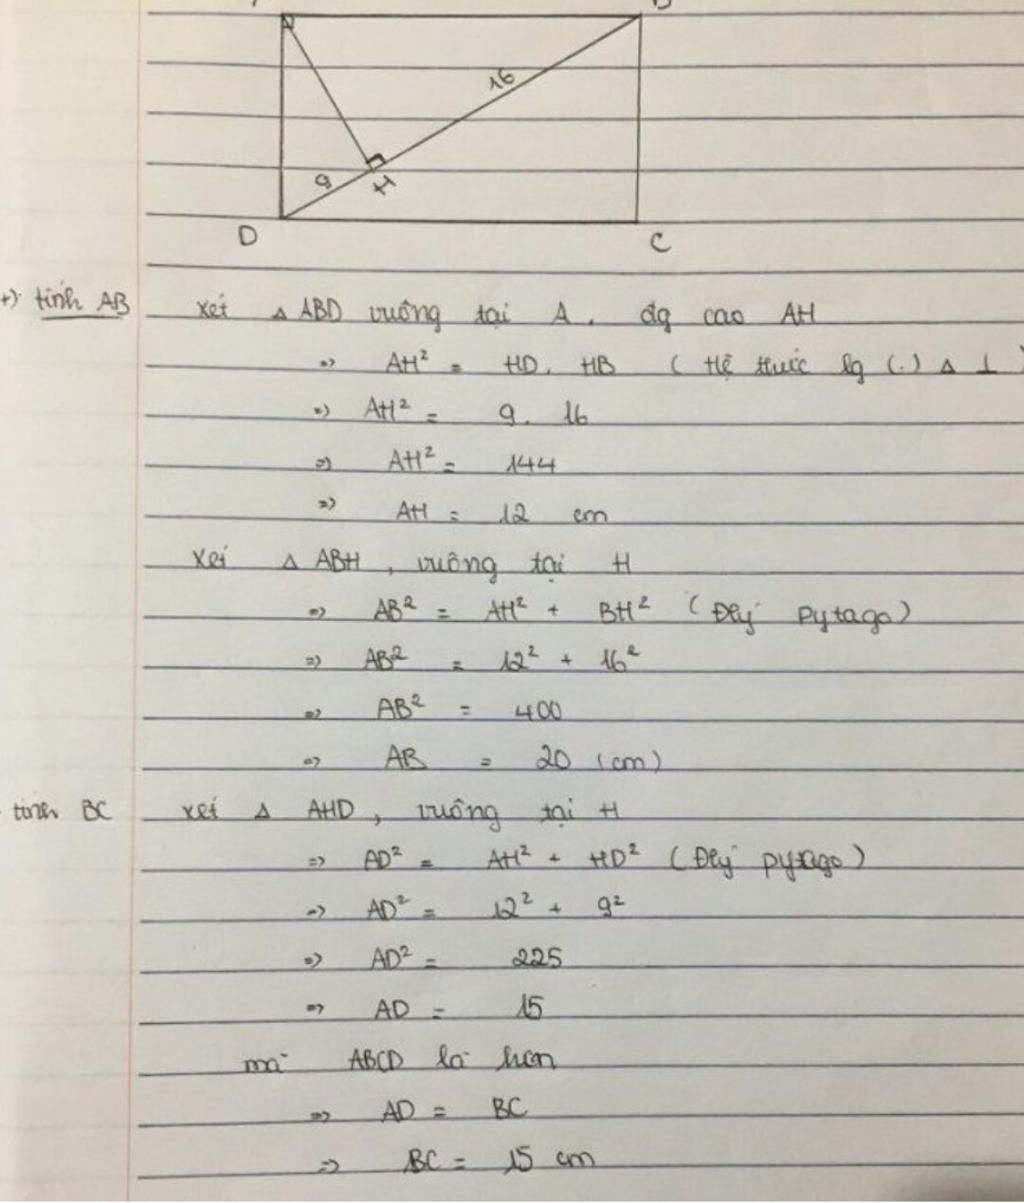 16
9
H
D
C
+) tính AB xét △ ABD vuông tại A, đg cao AH
=> AH² = HD. HB ( Hệ thức lg (.) △ ⊥ )
=> AH² = 9. 16
=> AH² = 144
=> AH = 12 cm
Xét △ ABH, vuông tại H
=> AB² = AH² + BH² (Đlý pytago)
=> AB² = 12² + 16²
=> AB² = 400
=> AB = 20 (cm)
tính BC xét △ AHD, vuông tại H
=> AD² = AH² + HD² (Đlý pytago)
=> AD² = 12² + 9²
=> AD² = 225
=> AD = 15
mà ABCD là hcn
=> AD = BC
=> BC = 15 cm